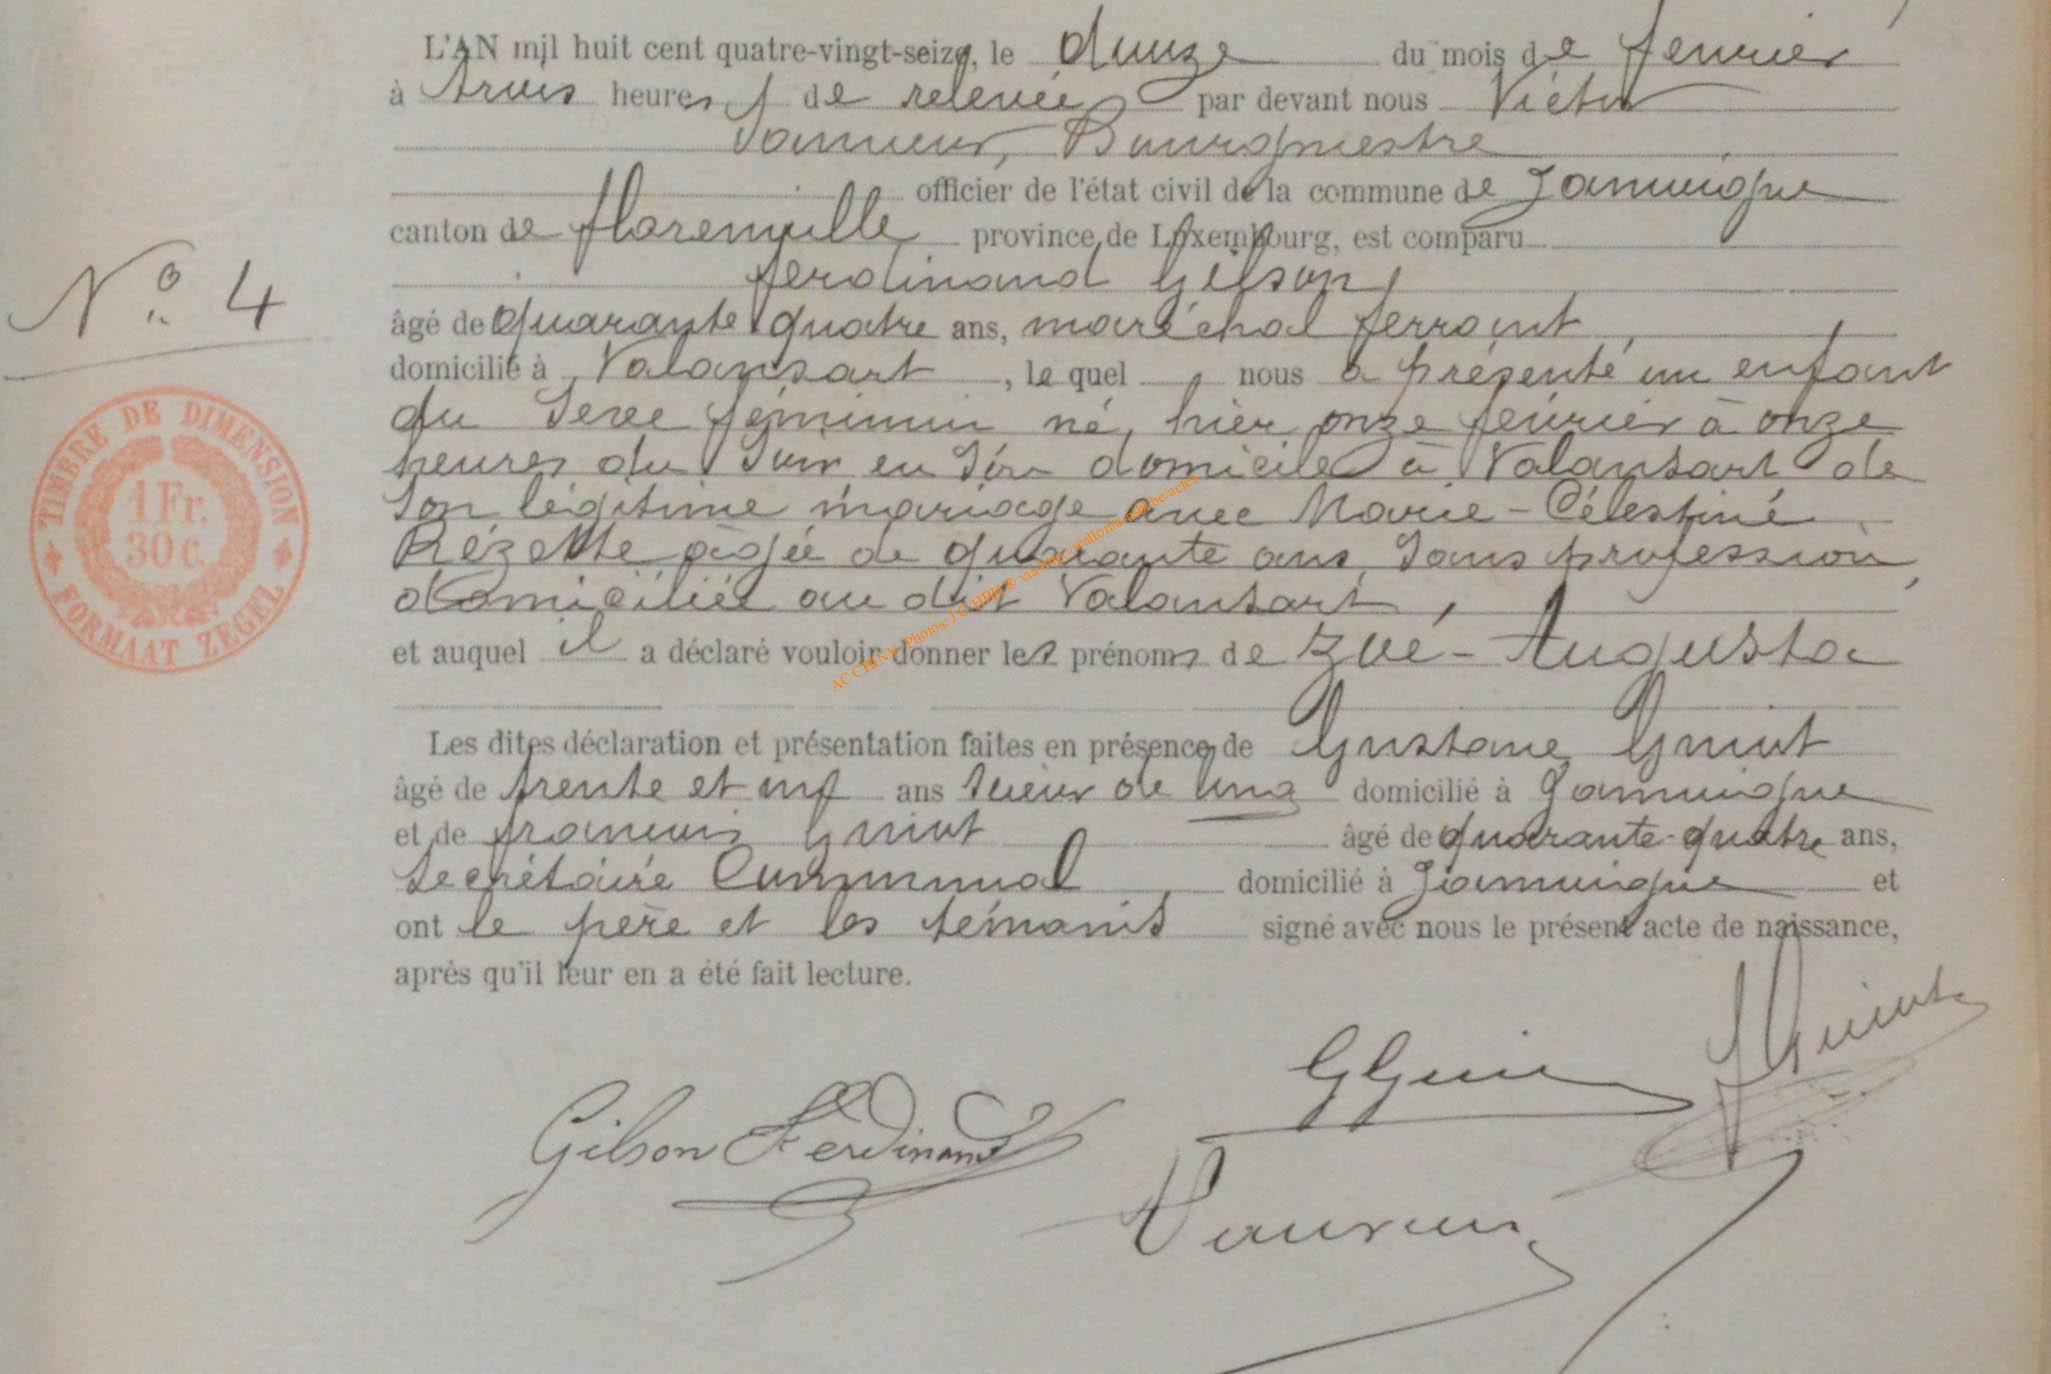 L'AN mil huit cent quatre-vingt-seize, le douze du mois de fevrier
à trois heures de relevée par devant nous Victor
Bourgmestre
officier de l'état civil de la commune de Jamoigne
canton de florenville province de Luxembourg, est comparu
ferdinand Gilson,
âgé de quarante quatre ans, maréchal ferrant,
domicilié à Valansart, le quel nous a présenté un enfant
du sexe féminin né, hier onze février à onze
heures du soir en son domicile à Valansart de
son légitime mariage avec Marie-Célestine
Rézette âgée de quarante ans, sans profession,
domiciliée au dit Valansart,
et auquel il a déclaré vouloir donner les prénoms de Zoé-Augusta
Les dites déclaration et présentation faites en présence de Gustave Guiot
âgé de trente et neuf ans scieur de long domicilié à Jamoigne
et de francois Guiot âgé de quarante-quatre ans,
secrétaire Communal domicilié à Jamoigne et
ont le père et les témoins signé avec nous le présent acte de naissance,
après qu'il leur en a été fait lecture.
N° 4
TIMBRE DE DIMENSION
1 Fr.
30 c.
FORMAAT ZEGEL
Gilson Ferdinand